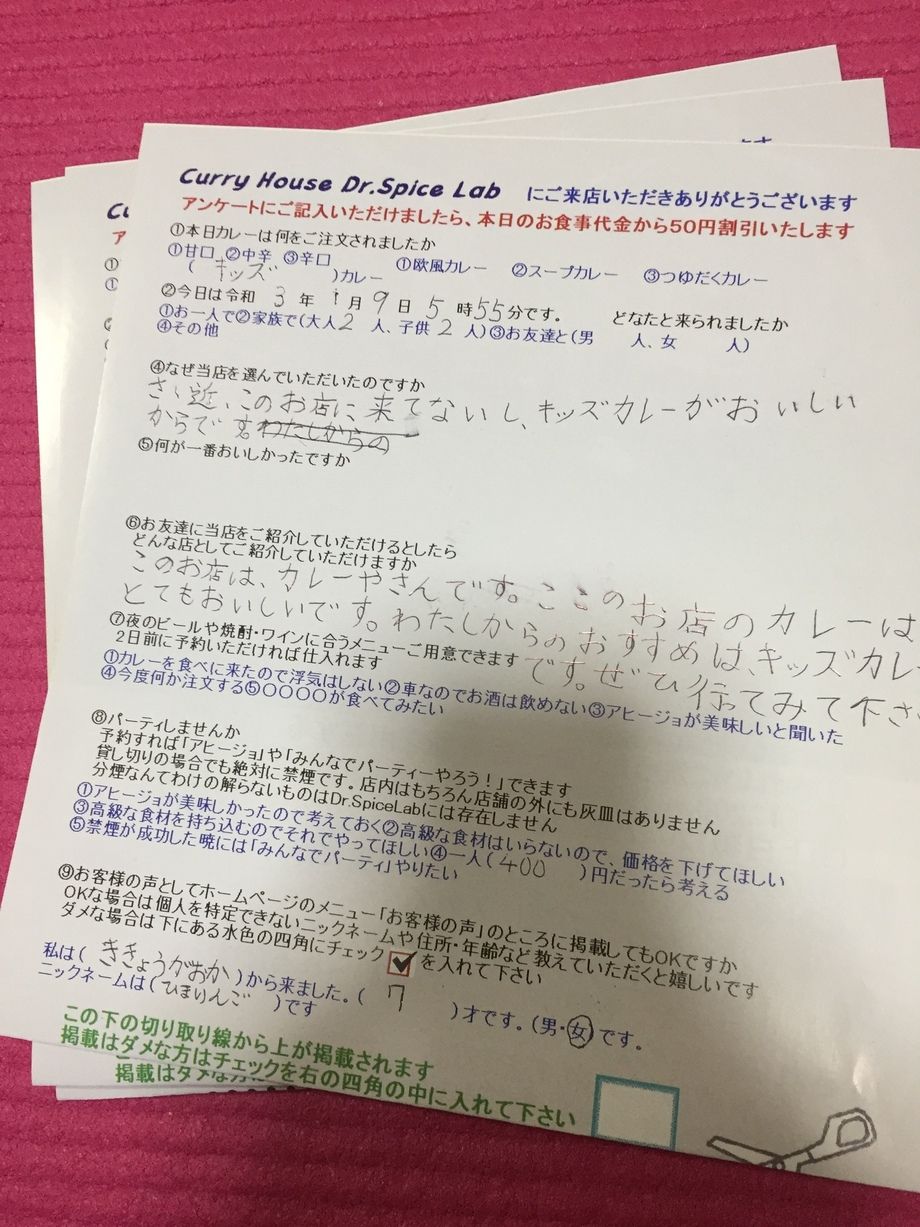 Curry House Dr.Spice Lab にご来店いただきありがとうございます
アンケートにご記入いただけましたら、本日のお食事代金から50円割引いたします
①本日カレーは何をご注文されましたか
①甘口 ②中辛 ③辛口 ①欧風カレー ②スープカレー ③つゆだくカレー
(キッズ )カレー
②今日は令和 3 年 1 月 9 日 5 時 55 分です。 どなたと来られましたか
①お一人で②家族で(大人 2 人、子供 2 人)③お友達と(男 人、女 人)
④その他
④なぜ当店を選んでいただいたのですか
さい近、このお店に来てないし、キッズカレーがおいしい
からです。わたしからの
⑤何が一番おいしかったですか
⑥お友達に当店をご紹介していただけるとしたら
どんな店としてご紹介していただけますか
このお店は、カレーやさんです。ここのお店のカレーは
とてもおいしいです。わたしからのおすすめは、キッズカレ
です。ぜひ行ってみて下さ
⑦夜のビールや焼酎・ワインに合うメニューご用意できます
2日前に予約いただければ仕入れます
①カレーを食べに来たので浮気はしない②車なのでお酒は飲めない③アヒージョが美味しいと聞いた
④今度何か注文する⑤〇〇〇〇が食べてみたい
⑧パーティしませんか
予約すれば「アヒージョ」や「みんなでパーティーやろう!」できます
貸し切りの場合でも絶対に禁煙です。店内はもちろん店舗の外にも灰皿はありません
分煙なんてわけの解らないものはDr.SpiceLabには存在しません
①アヒージョが美味しかったので考えておく②高級な食材はいらないので、価格を下げてほしい
③高級な食材を持ち込むのでそれでやってほしい④一人(400 )円だったら考える
⑤禁煙が成功した暁には「みんなでパーティ」やりたい
⑨お客様の声としてホームページのメニュー「お客様の声」のところに掲載してもOKですか
OKな場合は個人を特定できないニックネームや住所・年齢など教えていただくと嬉しいです
ダメな場合は下にある水色の四角にチェック を入れて下さい
私は(ききょうがおか)から来ました。( 7 )才です。(男・女)です。
ニックネームは(ひまりんご )です
この下の切り取り線から上が掲載されます
掲載はダメな方はチェックを右の四角の中に入れて下さい